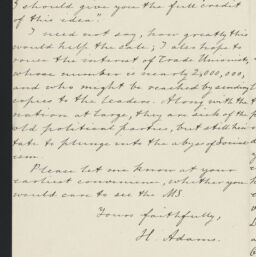 I should give you the full credit
of this idea."
I need not say, how greatly this
would help the sale; I also hope to
rouse the interest of Trade Unionists,
whose number is nearly 2,000,000,
and who might be reached by sending
copies to the leaders. Along with the
nation at large, they are sick of the
old political parties, but still hesi
tate to plunge into the abyss of Social
ism.
Please let me know at your
earliest convenience, whether you
would care to see the MS
Yours faithfully,
H. Adams.